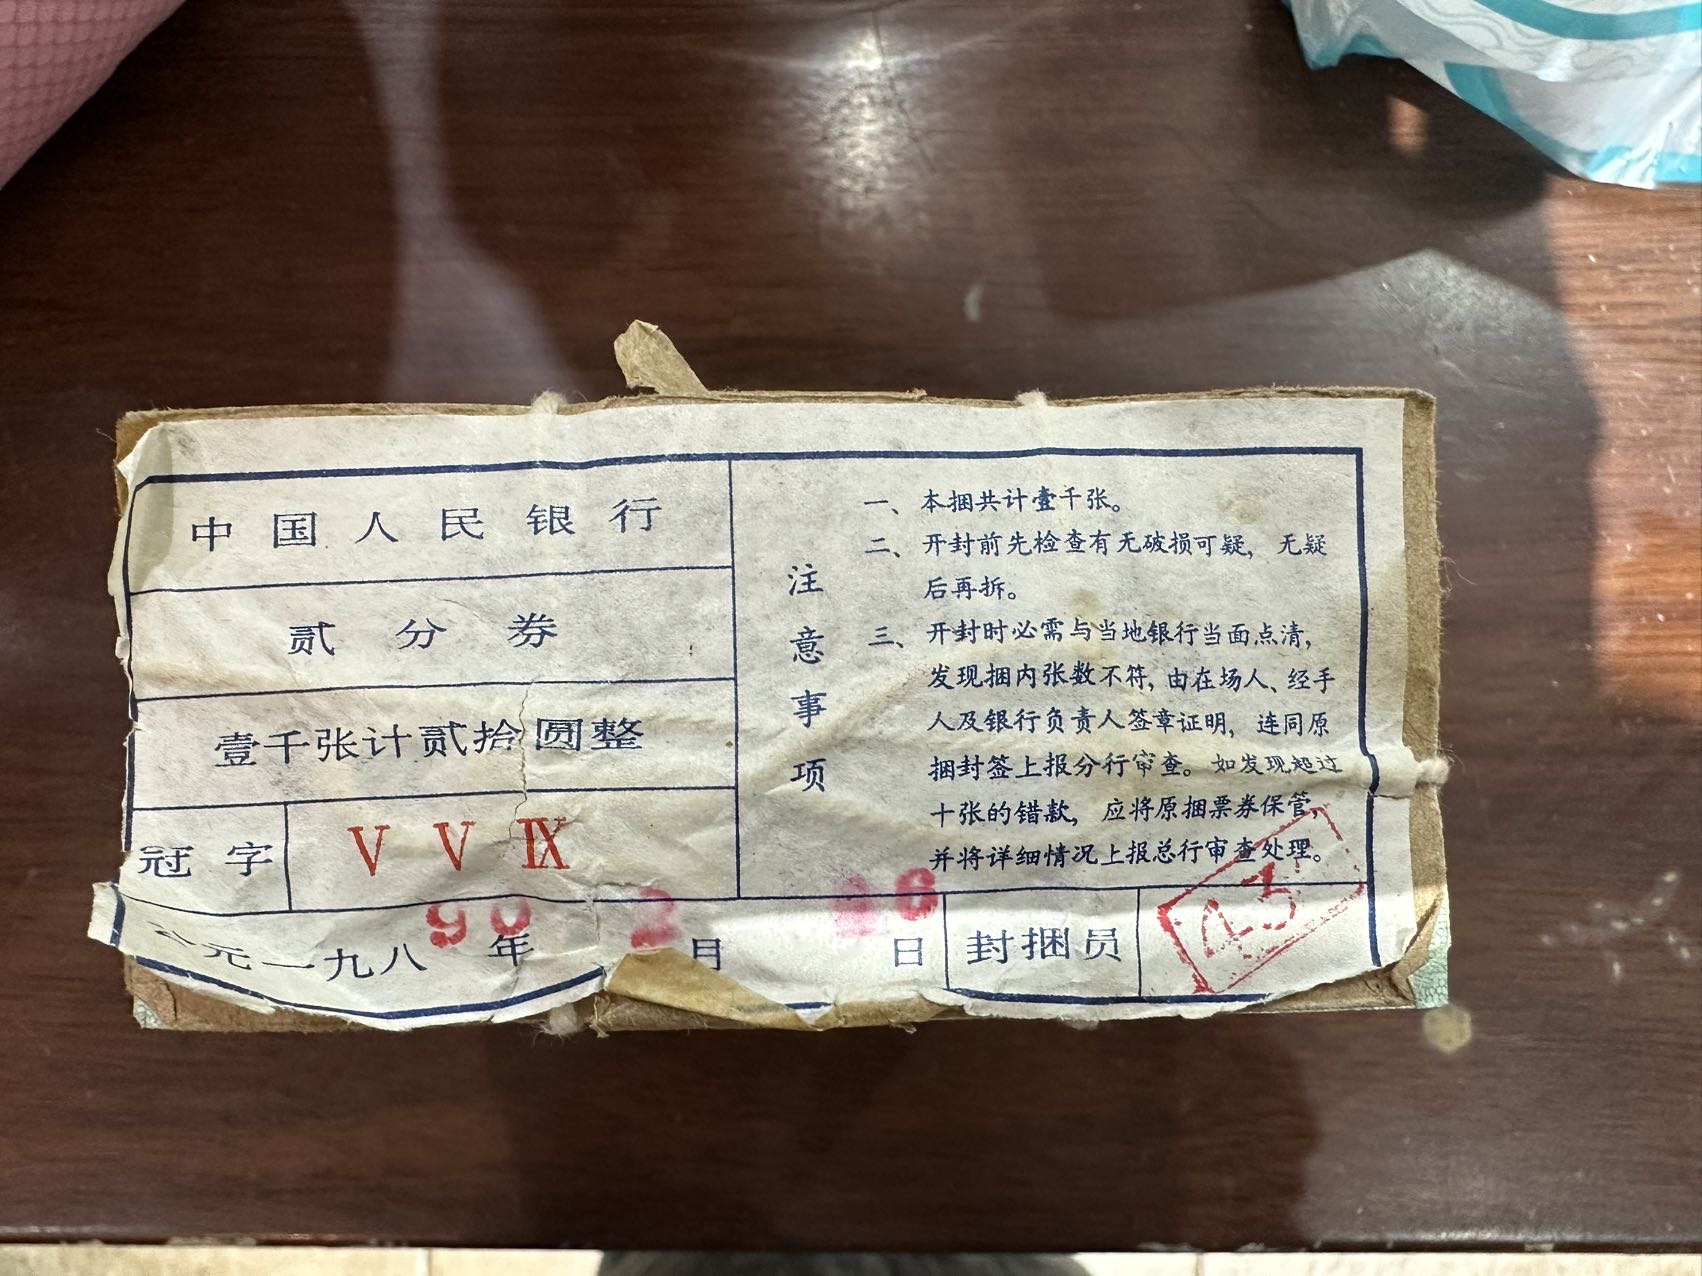 中国人民银行
贰分券
壹千张计贰拾圆整
冠字 V V IX
公元一九八 90 年 2 月 26 日
注意事项
一、本捆共计壹千张。
二、开封前先检查有无破损可疑，无疑
后再拆。
三、开封时必需与当地银行当面点清，
发现捆内张数不符，由在场人、经手
人及银行负责人签章证明，连同原
捆封签上报分行审查。如发现超过
十张的错款，应将原捆票券保管，
并将详细情况上报总行审查处理。
封捆员 43